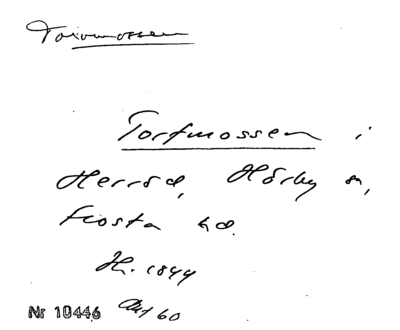 Torvmossen
Torfmossen i
Herröd, Hörby sn,
Frosta hd.
H. 1844
Nr 10446 Akt 60